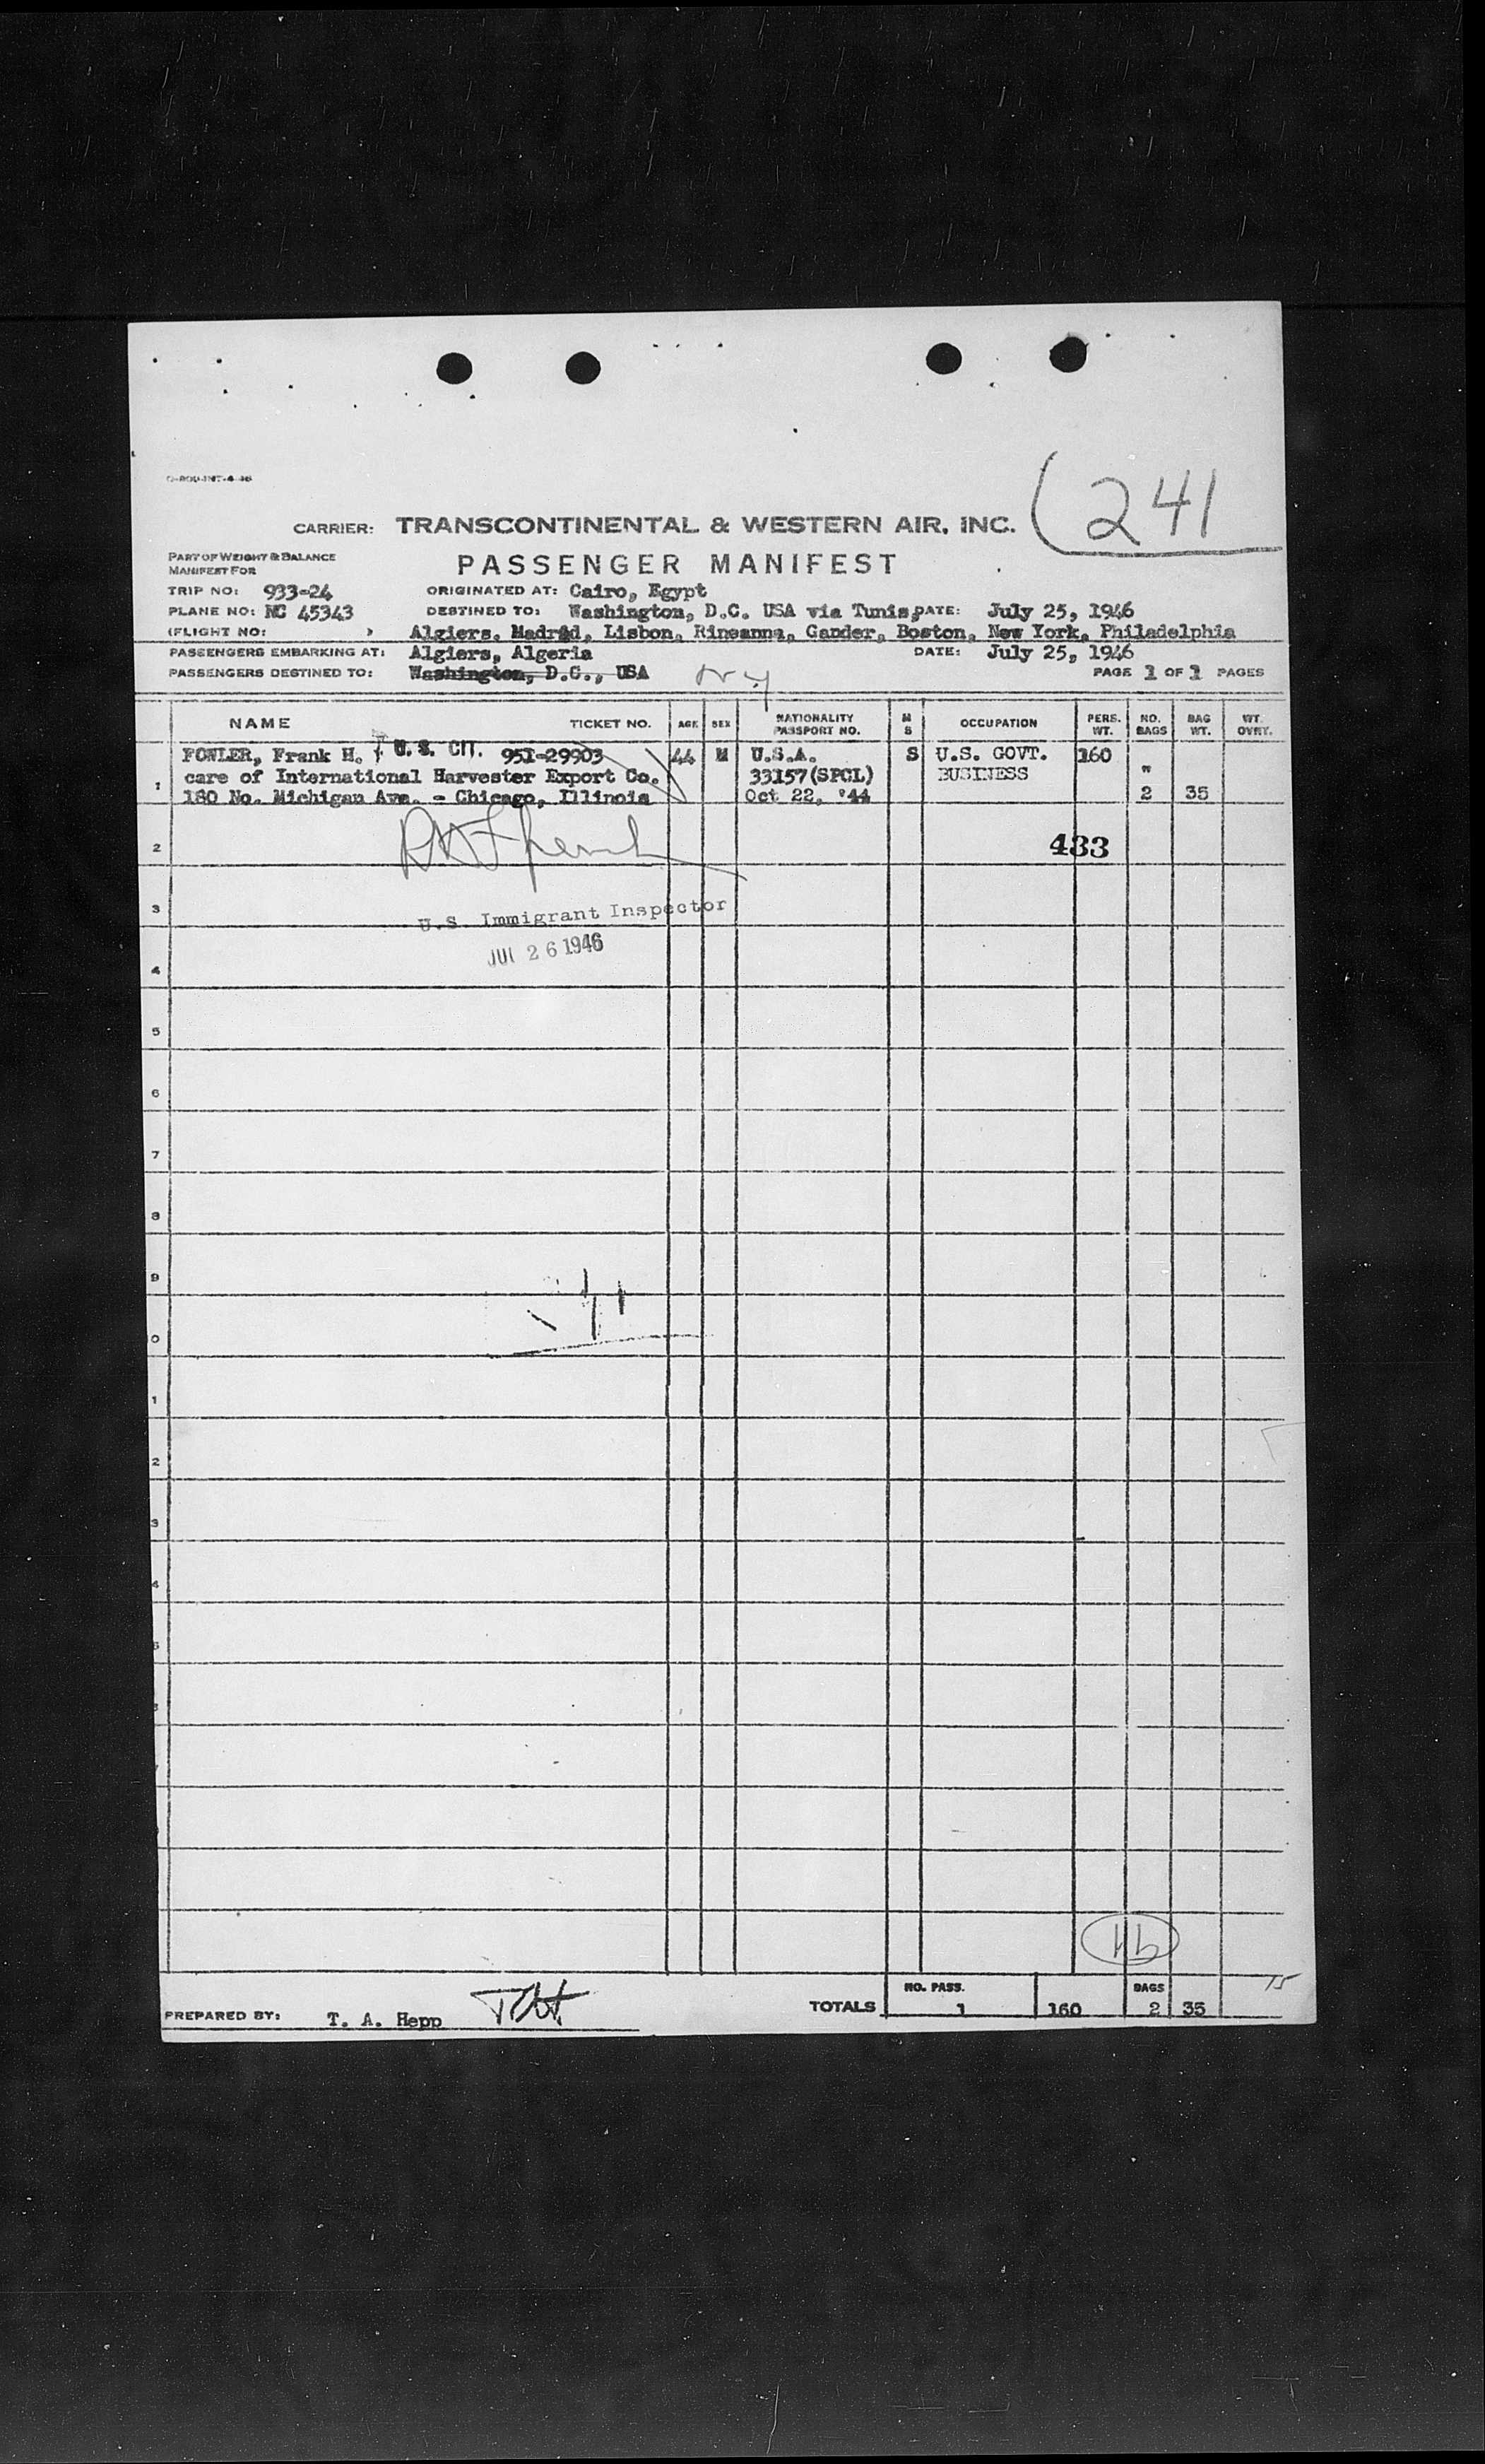 241
CARRIER: TRANSCONTINENTAL & WESTERN AIR, INC.
PART OF WEIGHT & BALANCE
MANIFEST FOR
PASSENGER MANIFEST
TRIP NO: 933-24 ORIGINATED AT: Cairo, Egypt
PLANE NO: NC 45343 DESTINED TO: Washington, D.C. USA via Tunis, DATE: July 25, 1946
(FLIGHT NO: ) Algiers, Madrid, Lisbon, Rineanna, Gander, Boston, New York, Philadelphia
PASSENGERS EMBARKING AT: Algiers, Algeria DATE: July 25, 1946
PASSENGERS DESTINED TO: Washington, D.C., USA NY PAGE 1 OF 1 PAGES
NAME TICKET NO. AGE SEX NATIONALITY PASSPORT NO. M S OCCUPATION PERS. WT. NO. BAGS BAG WT. WT. OVRT.
1 FOWLER, Frank H. U.S. CIT. 951-29903 44 M U.S.A. S U.S. GOVT. 160
care of International Harvester Export Co. 33157(SPCL) BUSINESS "
180 No. Michigan Ave. - Chicago, Illinois Oct 22, '44 2 35
2 433
3
U.S. Immigrant Inspector
JUL 26 1946
4
5
6
7
8
9
0
1
2
3
4
5
15
PREPARED BY: T. A. Hepp TOTALS NO. PASS. 1 160 BAGS 2 35